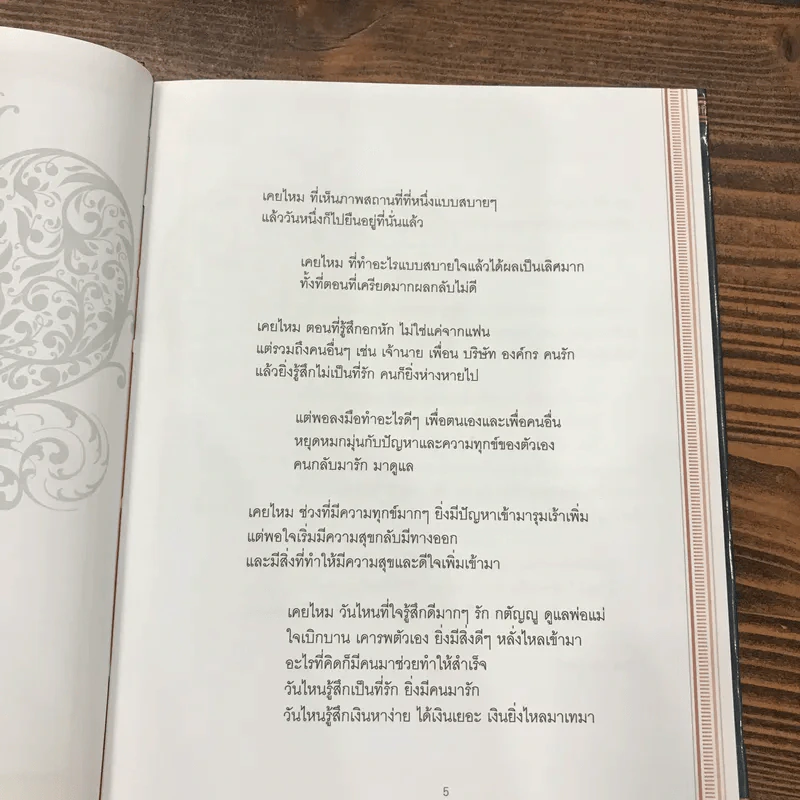 เคยไหม ที่เห็นภาพสถานที่ที่หนึ่งแบบสบายๆ
แล้ววันหนึ่งก็ไปยืนอยู่ที่นั่นแล้ว
เคยไหม ที่ทำอะไรแบบสบายใจแล้วได้ผลเป็นเลิศมาก
ทั้งที่ตอนที่เครียดมากผลกลับไม่ดี
เคยไหม ตอนที่รู้สึกอกหัก ไม่ใช่แค่จากแฟน
แต่รวมถึงคนอื่นๆ เช่น เจ้านาย เพื่อน บริษัท องค์กร คนรัก
แล้วยิ่งรู้สึกไม่เป็นที่รัก คนก็ยิ่งห่างหายไป
แต่พอลงมือทำอะไรดีๆ เพื่อตนเองและเพื่อคนอื่น
หยุดหมกมุ่นกับปัญหาและความทุกข์ของตัวเอง
คนกลับมารัก มาดูแล
เคยไหม ช่วงที่มีความทุกข์มากๆ ยิ่งมีปัญหาเข้ามารุมเร้าเพิ่ม
แต่พอใจเริ่มมีความสุขกลับมีทางออก
และมีสิ่งที่ทำให้มีความสุขและดีใจเพิ่มเข้ามา
เคยไหม วันไหนที่ใจรู้สึกดีมากๆ รัก กตัญญู ดูแลพ่อแม่
ใจเบิกบาน เคารพตัวเอง ยิ่งมีสิ่งดีๆ หลั่งไหลเข้ามา
อะไรที่คิดก็มีคนมาช่วยทำให้สำเร็จ
วันไหนรู้สึกเป็นที่รัก ยิ่งมีคนมารัก
วันไหนรู้สึกเงินหาง่าย ได้เงินเยอะ เงินยิ่งไหลมาเทมา
5